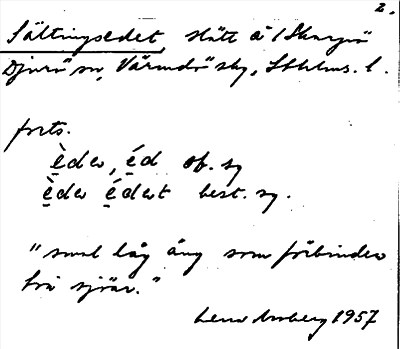 2.
Sältingsedet, slått å i Skarpö
Djurö sn, Värmdö skg, Sthlms. l.
forts.
èder, éd ob. sg
èder édert best. sg.
"smal låg äng som förbinder
två sjöar."
1957